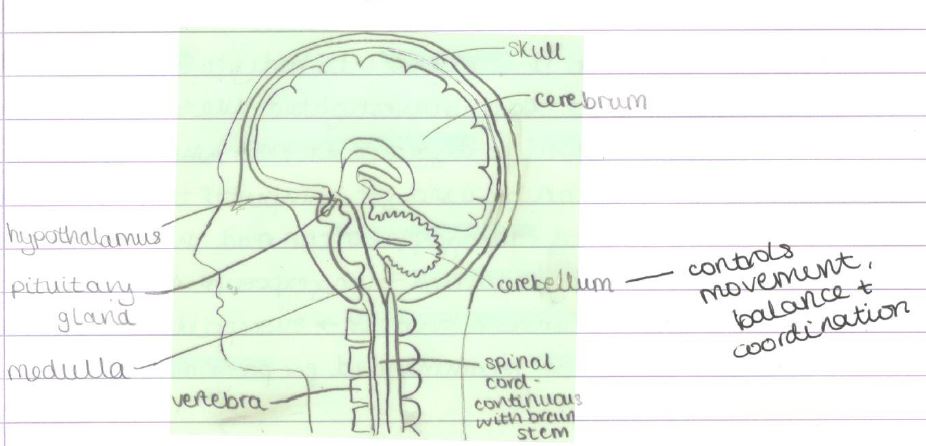 skull
cerebrum
hypothalamus
pituitary
gland
medulla
vertebra
cerebellum
controls
movement,
balance +
coordination
spinal
cord-
continuous
with brain
stem